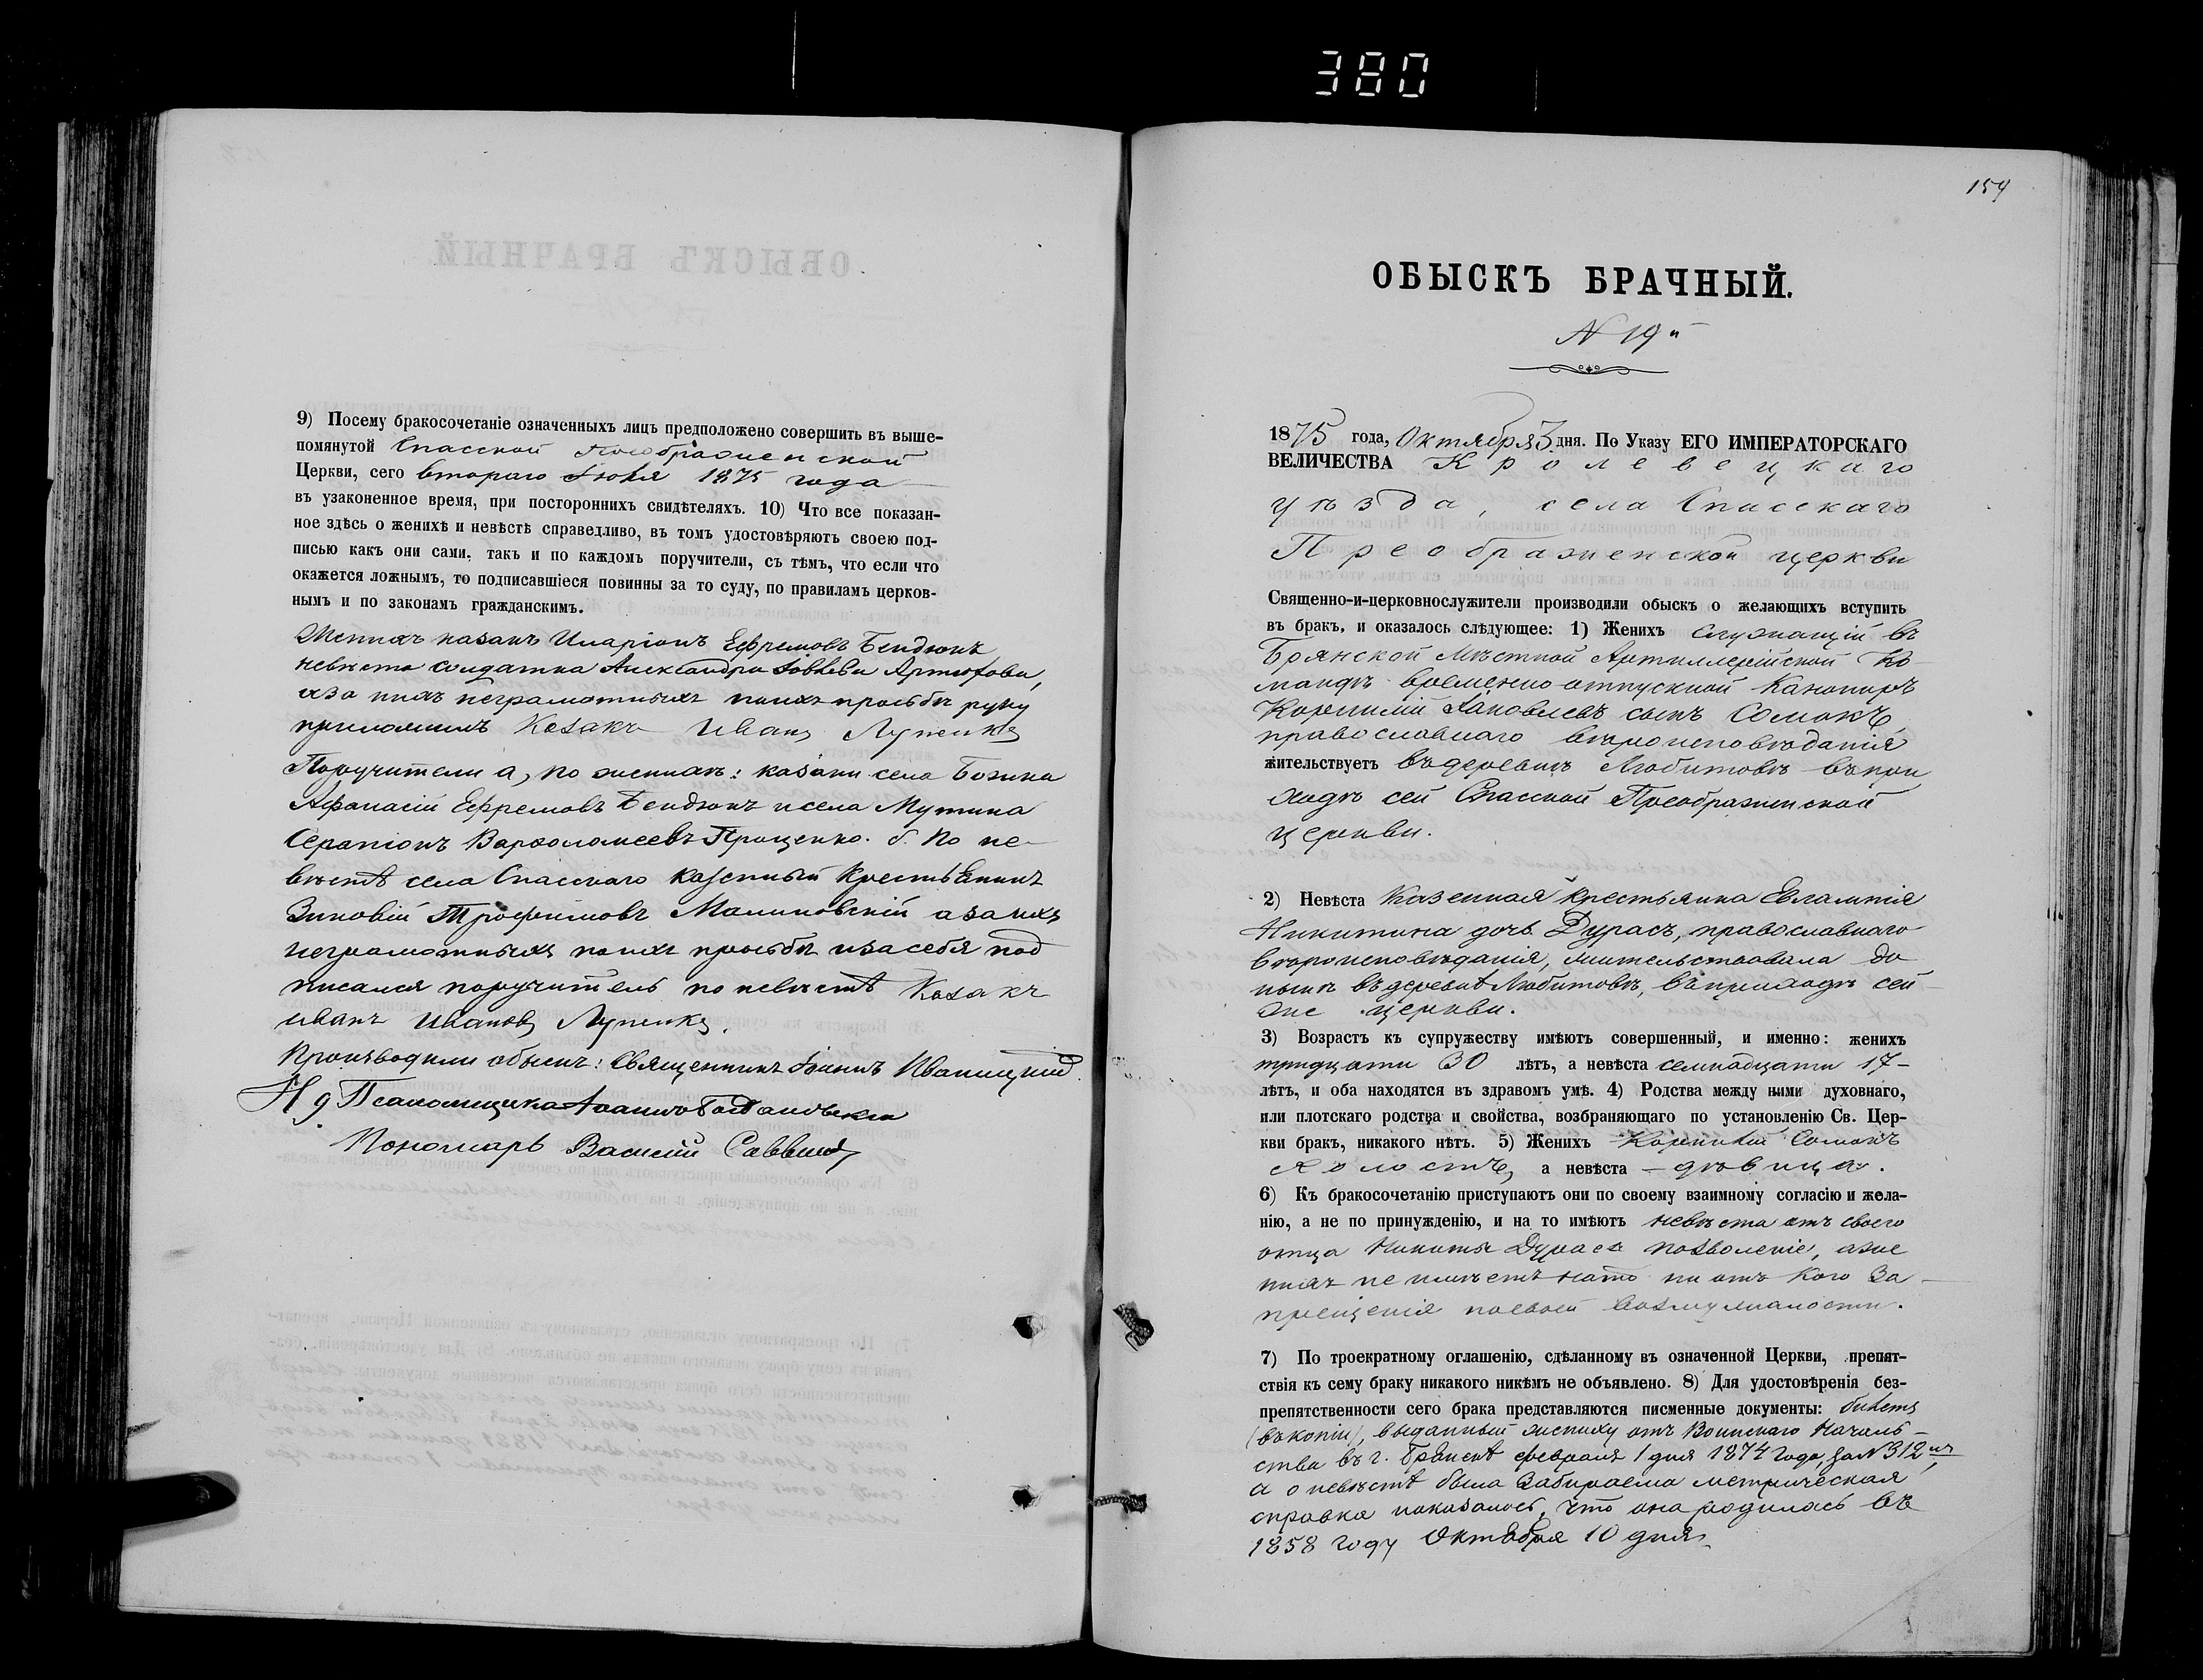 380
9) Посему бракосочетаніе означенныхъ лицъ предположено совершить въ выше-
помянутой Спасской Преображенской
Церкви, сего втораго Іюля 1875 года
въ узаконенное время, при постороннихъ свидѣтеляхъ. 10) Что все показан-
ное здѣсь о женихѣ и невѣстѣ справедливо, въ томъ удостовѣряютъ своею под-
писью какъ они сами, такъ и по каждомъ поручители, съ тѣмъ, что если что
окажется ложнымъ, то подписавшіеся повинны за то суду, по правиламъ церков-
нымъ и по законамъ гражданскимъ.
Женихъ казакъ Иларіонъ Ефремовъ Бендюкъ
невѣста солдатка Александра Іовлева Артюхова,
а за нихъ неграмотныхъ по ихъ просьбѣ руку
приложилъ Козакъ Иванъ Лупенко
Поручители а, по женихѣ: казаки села Божика
Афанасій Ефремовъ Бендюкъ и села Мутина
Серапіонъ Варфоломеевъ Проценко. б. По не-
вѣстѣ села Спасскаго казенный крестьянинъ
Зиновій Трофимовъ Малиновскій а за ихъ
неграмотныхъ по ихъ просьбѣ и за себя под
писался поручитель по невѣстѣ Козакъ
Иванъ Ивановъ Лупенко.
Производили обыскъ: Священникъ Іоаннъ Иваницкій.
И д Псаломщика
Пономарь Василій Саввичъ
159
ОБЫСКЪ БРАЧНЫЙ.
N 19й
1875 года, Октября 3 дня. По Указу ЕГО ИМПЕРАТОРСКАГО
ВЕЛИЧЕСТВА Кролевецкаго
уѣзда, села Спасскаго
Преображенской церкви
Священно-и-церковнослужители производили обыскъ о желающихъ вступить
въ бракъ, и оказалось слѣдующее: 1) Женихъ служащій въ
Брянской Мѣстной Артиллерійской Ко-
мандѣ временно отпускной Канониръ
Корнилій Яковлевъ сынъ Сомокъ,
православнаго вѣроисповѣданія
жительствуетъ въ деревнѣ Любитовѣ въ при
ходѣ сей Спасской Преображенской
церкви.
2) Невѣста Казенная Крестьянка Евлампія
Никитина дочь Дурасъ, православнаго
вѣроисповѣданія, жительствовала до
нынѣ въ деревнѣ Любитовѣ, въ приходѣ сей
же церкви.
3) Возрастъ къ супружеству имѣютъ совершенный, и именно: женихъ
тридцати 30 лѣтъ, а невѣста семнадцати 17-
лѣтъ, и оба находятся въ здравомъ умѣ. 4) Родства между ними духовнаго,
или плотскаго родства и свойства, возбраняющаго по установленію Св. Цер-
кви бракъ, никакого нѣтъ. 5) Женихъ Корнилій Сомокъ
холостъ, а невѣста – дѣвица.
6) Къ бракосочетанію приступаютъ они по своему взаимному согласію и жела-
нію, а не по принужденію, и на то имѣютъ невѣста отъ своего
отца Никиты Дураса позволеніе, а же
нихъ не имѣетъ на то ни отъ кого за-
прещенія по своей возмужалости.
7) По троекратному оглашенію, сдѣланному въ означенной Церкви, препят-
ствія къ сему браку никакого никѣмъ не объявлено. 8) Для удостовѣренія без-
препятственности сего брака представляются писменные документы: билетъ
(въ копіи), выданный жениху отъ Воинскаго Началь-
ства въ г. Брянскѣ февраля 1 дня 1874 года, за N 312мъ,
а о невѣстѣ была забираема метрическая
справка показалось, что она родилась въ
1858 году Октября 10 дня.